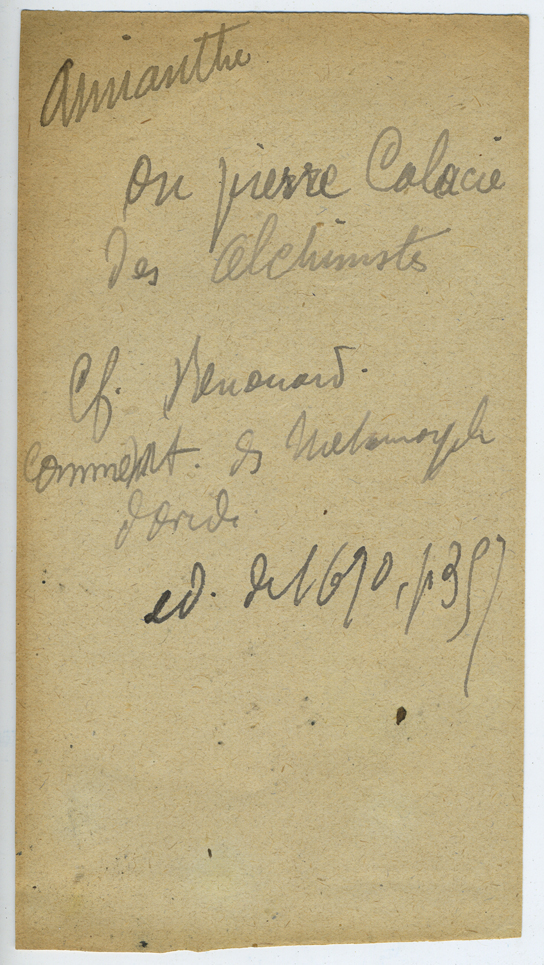 Amianthe
ou pierre Calacie
des Alchimistes
Cf. Renouard.
Comment. des Metamorph
d'Ovide
ed. de 1690, p 357